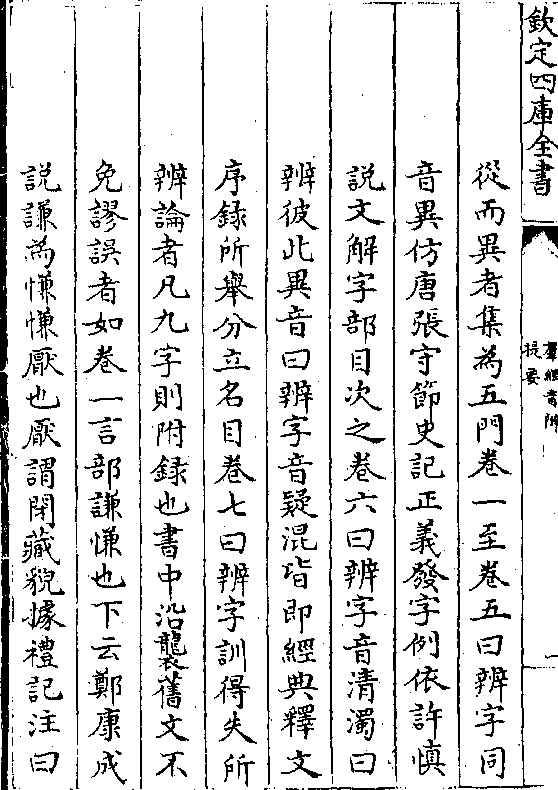 欽定四庫全書
羣經音辨
提要
一
從而異者集為五門卷一至卷五曰辨字同
音異仿唐張守節史記正義發字例依許慎
説文解字部目次之卷六曰辨字音清濁曰
辨彼此異音曰辨字音疑混皆即經典釋文
序録所舉分立名目卷七曰辨字訓得失所
辨論者凡九字則附録也書中沿襲舊文不
免謬誤者如卷一言部謙慊也下云鄭康成
説謙為慊慊厭也厭謂閉藏貌據禮記注曰